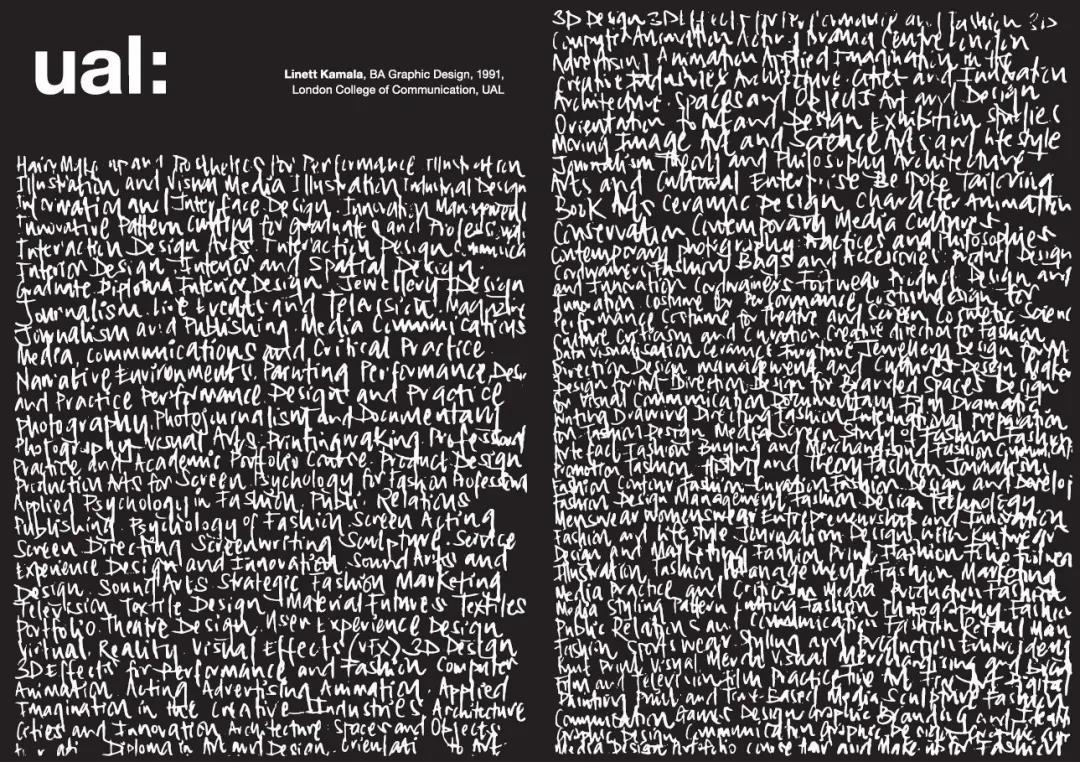 ual:
Linett Kamala, BA Graphic Design, 1991,
London College of Communication, UAL
Hair Make up and Prosthetics for Performance Illustration
Illustration and Visual Media Illustration Industrial Design
Information and Interface Design Innovation Management
Innovative Pattern Cutting for Graduates and Professional
Interaction Design Arts Interaction Design
Interior Design Interior and Spatial Design
Graduate Diploma Interior Design Jewellery Design
Journalism. Live Events and Television. Magazine
Journalism and Publishing Media Communications
Media, communications and Critical Practice
Narrative Environments. Painting Performance Des
and Practice Performance Design and Practice
photography. Photojournalism and Documentary
Photography, Visual Arts Printmaking Professional
Practice and Academic Portfolio Course. Product Design
Production Arts for Screen Psychology for Fashion Professional
Applied Psychology in Fashion Public Relations
Publishing Psychology of Fashion Screen Acting
Screen Directing Screenwriting Sculpture. Service
Experience Design and Innovation Sound Arts and
Design Sound Arts Strategic Fashion Marketing
Television Textile Design Material Futures Textiles
Portfolio. Theatre Design. User Experience Design
Virtual Reality Visual Effects (VFX) 3D Design
3D Effects for performance and Fashion Computer
Animation Acting Advertising Animation Applied
Imagination in the Creative Industries Architecture
Cities and Innovation Architecture Spaces and Objects
Diploma in Art and Design. Orientati to Art
3D Design 3D Effects for Performance and Fashion 3D
Computer Animation Acting Drama Centre London
Advertising Animation Applied Imagination in the
Creative Industries Architecture Cities and Innovation
Architecture. Spaces and Objects Art and Design
Orientation to Art and Design Exhibition Studies
Moving Image Art and Science Arts and Lifestyle
Journalism Theory and Philosophy Architecture
Arts and Cultural Enterprise Bespoke Tailoring
Book Arts Ceramic Design, Character Animation
Conservation Contemporary Media Cultures
Contemporary photography Practices and Philosophies
Cordwainers Fashion Bags and Accessories Product Design and
and Innovation Cordwainers Footwear Product Design and
Innovation Costume for Performance Costume design for
Performance Costume for Theatre and Screen Cosmetic Science
Culture Criticism and Curation Creative direction for Fashion
Data visualisation Ceramics Furniture Jewellery Design
Direction Design management and Cultures Design
Design for Art Direction Design for Branded Spaces Design
for Visual Communication Documentary Film Dramatic
Writing Drawing Directing Fashion
for Fashion Design Media Screen Study of Fashion Fashion
Artefact Fashion Buying and Merchandising Fashion Communication
Promotion Fashion History and Theory Fashion Journalism
Fashion Contour Fashion Curation Fashion Design and Develop
Fashion Design Management Fashion Design Technology
Menswear Womenswear Entrepreneurship and Innovation
Fashion and Lifestyle Journalism Design
Design and Marketing Fashion Print Fashion Film
Illustration Fashion Management Fashion Marketing
Media Practice and Criticism Media Production Fashion
Media Styling Pattern Cutting Fashion Photography Fashion
Public Relations and Communication Fashion Retail Man
Fashion Sportswear Styling and Production
Print Visual Merch Visual Merchandising and
Film and Television Film Practice Fine Art Fine Art Digital
Painting Print and Time-Based Media Sculpture Fashion
Communication Games Design Graphic Branding and Identity
Graphic Design Communication Graphic Design
Media Design Portfolio course Hair and Make up for Fashion